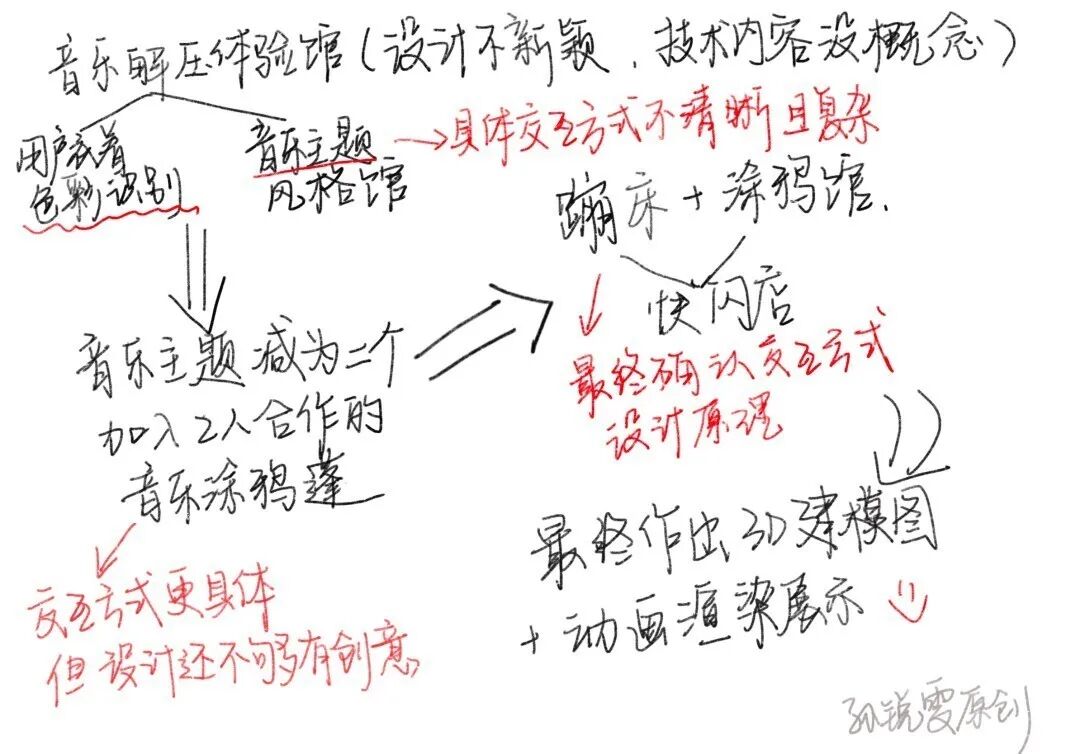 音乐解压体验馆(设计不新颖,技术内容没概念)
用户衣着
色彩识别
音乐主题
风格馆
→具体交互方式不清晰且复杂
蹦床+涂鸦馆.
快闪店
音乐主题减为二个
加入2人合作的
音乐涂鸦蓬
最终确认交互方式
设计原理
交互方式更具体
但设计还不够有创意
最终作出3D建模图
+动画渲染展示
孙锐雯原创